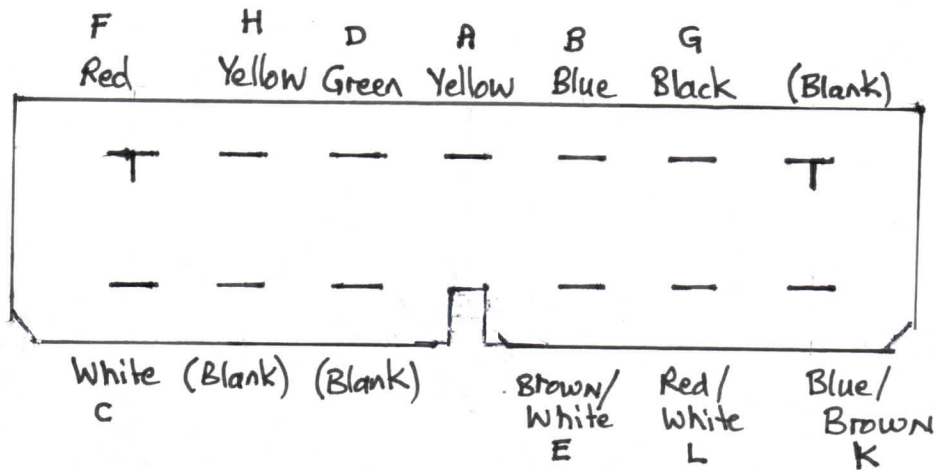 F H D A B G
Red Yellow Green Yellow Blue Black (Blank)
White (Blank) (Blank) Brown/ Red/ Blue/
C White White Brown
E L K